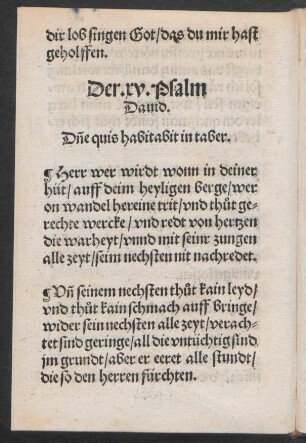 dir lob singen Got/das du mir hast
geholffen.
Der.xv.Psalm
Dauid.
Dn̄e quis habitabit in taber.
¶ Herr wer wirdt wonn in deiner
hüt/auff deim heyligen berge/wer
on wandel hereine trit/vnd thůt ge-
rechte wercke/vnd redt von hertzen
die warheyt/vnnd mit seinr zungen
alle zeyt/seim nechsten nit nachredet.
¶ Vn̄ seinem nechsten thůt kain leyd/
vnd thůt kain schmach auff bringe/
wider sein nechsten alle zeyt/verach-
tet sind geringe/all die vntüchtig sind
jm grundt/aber er eeret alle stundt/
die so den herren fürchten.